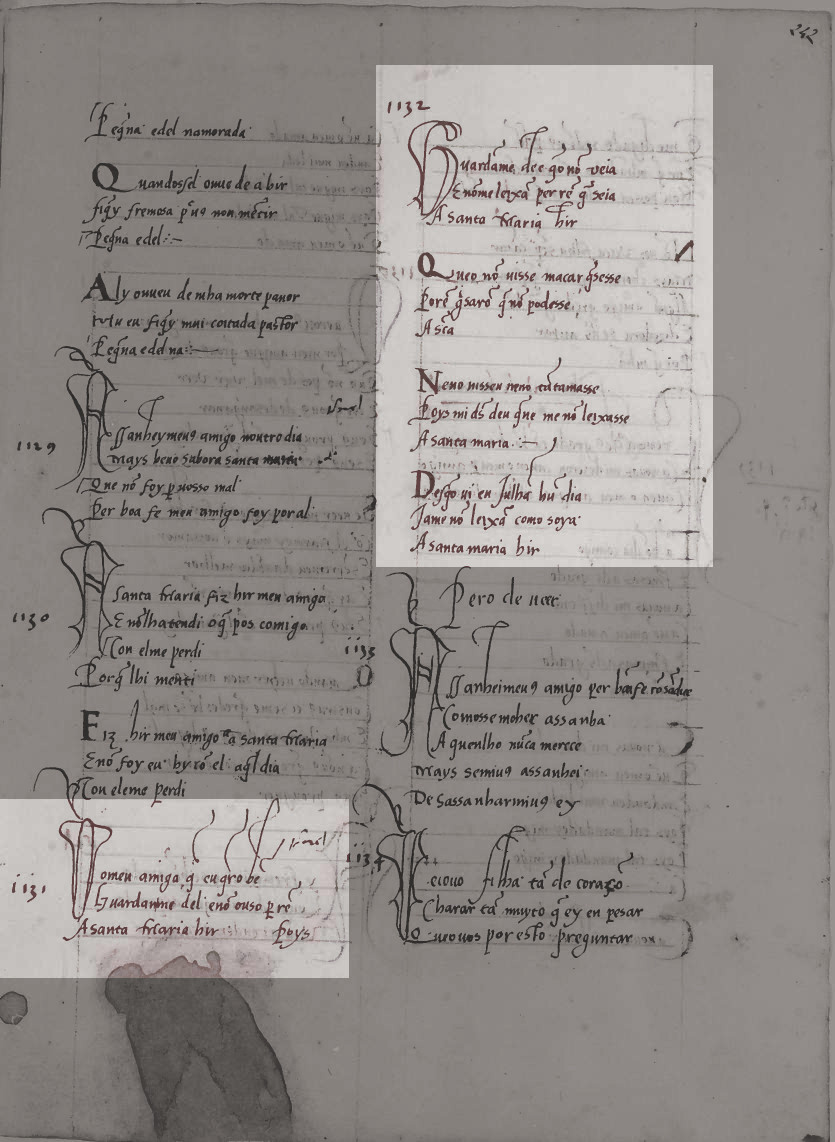 242
Pegña edel namorada
Quandossel ouue de a hir
fiq̃y fremosa p̃ uꝯ non mẽtir
Pegña edel:~
Aly ouueu de mha morte pauor
hu eu fiq̃y mui coitada pastor
Pegña edel na:~
1129
Assanheymeuꝯ amigo noutro dia
mays beno sabora santa maria
Que nõ foy p̲ uosso mal
Per boa fe meu amigo foy por al
1130
A Santa Maria fiz hir meu amigo
E nõlhatendi o q̃ pos comigo
Con elme perdi
Porq̃ lhi menti
Fiz hir meu amigo a santa Maria
E nõ foy eu hy cõ el aq̃l dia
Con eleme perdi
1131
Pomeu amigo q̃ eu q̃ro bẽ
Guardanme del e nõ ouso p̲ rẽ
A santa Maria hir Poys
1132
Guardãme de e gõ nõ veia
E nõme leixã per rẽ q̃ seia
A Santa Maria hir
Queo nõ uisse macar q̃sesse
Porẽ g̃sarõ q̃ nõ podesse
A scã
Neno uisseu neno tãtamasse
Poys mi ds̃ deu q̃ne me nõ leixasse
A santa maria :~
Desq̃o ui en Julhã hũ dia
Jame nõ leixã como soya
A santa maria hir
Pero de ueer
1133
Assanheimeuꝯ amigo per bõa fe cõ sãdiçe
Comosse moher assanha
A quenlho nũca merece
Mays semiuꝯ assanhei
Desassanharmiuꝯ ey
1134
Veiovo filha tã de coraçõ
Chorar tã muyto q̃ ey en pesar
Q̃ueouos por esto preguntar